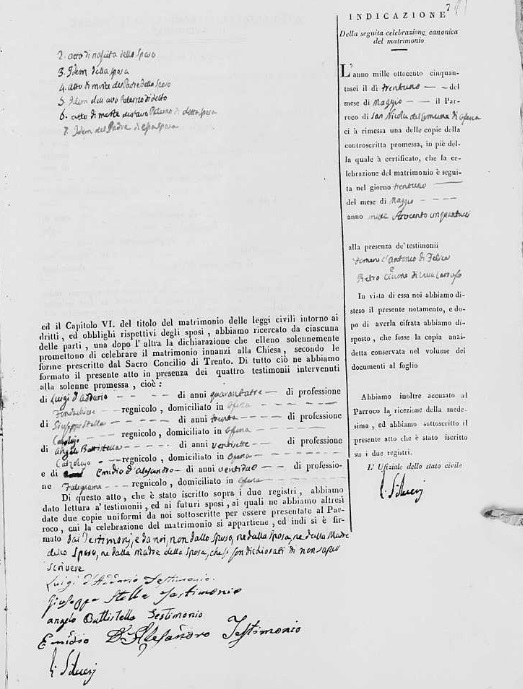 2. atto di nascita dello sposo
3. Idem della sposa
4. atto di morte del Padre dello sposo
5. Idem dell'avo Paterno di detto
6. atto di morte dell'avo Paterno di detta sposa
7. Idem del Padre di essa sposa
ed il Capitolo VI. del titolo del matrimonio delle leggi civili intorno ai
dritti, ed obblighi rispettivi degli sposi, abbiamo ricercato da ciascuna
delle parti, una dopo l'altra la dichiarazione che elleno solennemente
promettono di celebrare il matrimonio innanzi alla Chiesa, secondo le
forme prescritto dal Sacro Concilio di Trento. Di tutto ciò ne abbiamo
formato il presente atto in presenza dei quattro testimonii intervenuti
alla solenne promessa, cioè:
di Luigi d'Addario - - - di anni quarantatre - di professione
- regnicolo, domiciliato in
di Giuseppe Stella - - - di anni trenta - - di professione
Calzolajo - regnicolo, domiciliato in
di Angelo Battistella - - di anni ventisette - - di professione
Calzolajo - - regnicolo, domiciliato in
e di Emidio d'Alesandro - di anni - di professio-
ne - - regnicolo, domiciliato in
Di questo atto, che è stato iscritto sopra i due registri, abbiamo
dato lettura a' testimonii, ed ai futuri sposi, ai quali ne abbiamo altresì
date due copie uniformi da noi sottoscritte per essere presentate al Par-
roco, cui la celebrazione del matrimonio si appartiene, ed indi si è fir-
mato dai Testimonj, e da noi, non dallo sposo, ne dalla sposa, ne dalla Madre
dello Sposo, ne dalla madre della Sposa, che han dichiarato di non sapere
scrivere
Luigi d'Addario Testimonio
Giuseppe Stella Testimonio
angelo Battistella Testimonio
Emidio D'Alesandro Testimonio
7
INDICAZIONE
Della seguita celebrazione canonica
del matrimonio
L'anno mille ottocento cinquan-
tasei il dì trentuno - - del
mese di Maggio - - il Par-
roco di San Nicola del Comune di
ci à rimessa una delle copie della
controscritta promessa, in piè del-
la quale à certificato, che la ce-
lebrazione del matrimonio è segui-
ta nel giorno trentuno
del mese di Maggio - -
anno mille Ottocento
alla presenza de' testimonii
d'Antonio di Felice
Pietro di
In vista di essa noi abbiamo di-
steso il presente notamento, e do-
po di averla cifrata abbiamo di-
sposto, che fosse la copia anzi-
detta conservata nel volume dei
documenti al foglio
Abbiamo inoltre accusato al
Parroco la ricezione della mede-
sima, ed abbiamo sottoscritto il
presente atto che è stato iscritto
su i due registri.
L' Ufiziale dello stato civile